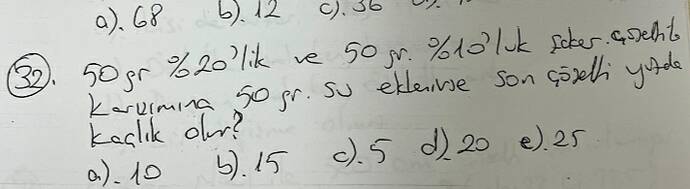 a). 68 b). 12 c). 36
32. 50 gr %20'lik ve 50 gr. %10'luk şeker çözelti
karışımına 50 gr. su eklenirse son çözelti yüzde
kaçlık olur?
a). 10 b). 15 c). 5 d). 20 e). 25